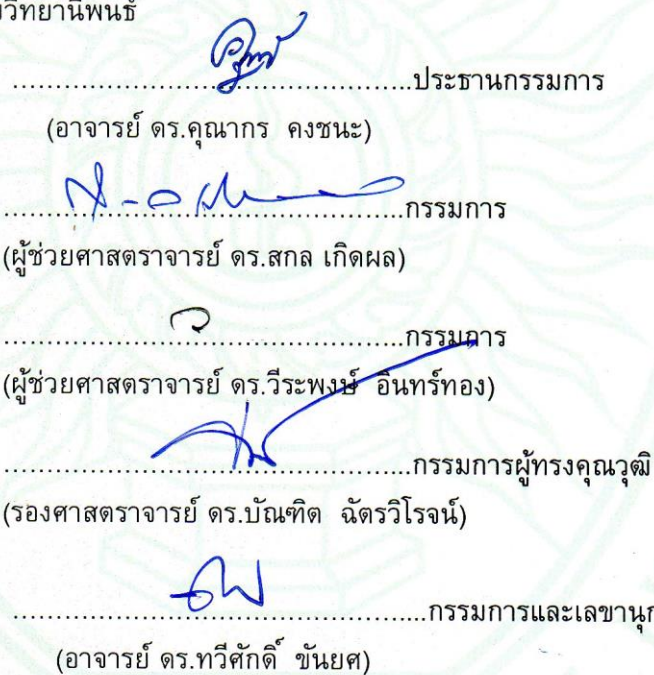 วิทยานิพนธ์
................................................ประธานกรรมการ
(อาจารย์ ดร.คุณากร คงชนะ)
................................................กรรมการ
(ผู้ช่วยศาสตราจารย์ ดร.สกล เกิดผล)
................................................กรรมการ
(ผู้ช่วยศาสตราจารย์ ดร.วีระพงษ์ อินทร์ทอง)
................................................กรรมการผู้ทรงคุณวุฒิ
(รองศาสตราจารย์ ดร.บัณฑิต ฉัตรวิโรจน์)
................................................กรรมการและเลขานุก
(อาจารย์ ดร.ทวีศักดิ์ ขันยศ)